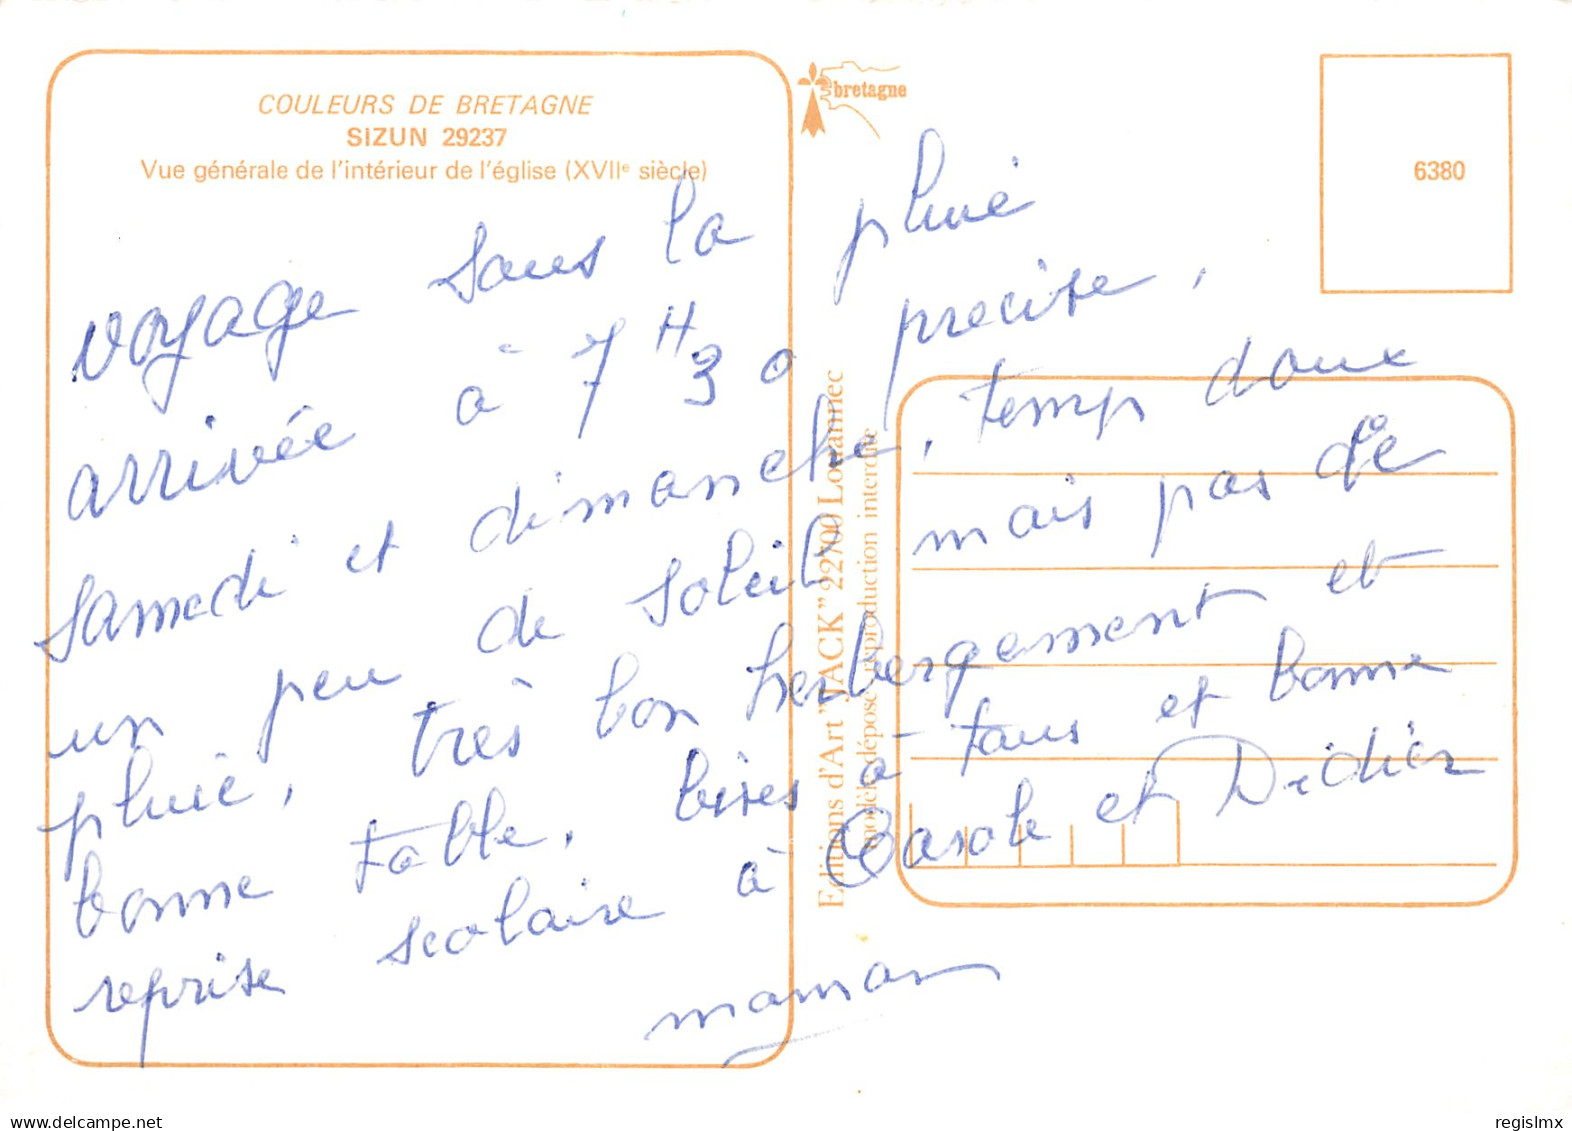 COULEURS DE BRETAGNE
SIZUN 29237
Vue générale de l'intérieur de l'église (XVIIe siècle)
bretagne
6380
voyage sous la pluie
arrivée à 7H30 precise,
samedi et dimanche, temp doux
un peu de soleil mais pas de
pluie, très bon herbergement et
bonne table, bises à tous et bonne
reprise scolaire à Carole et Didier
maman
Editions d'Art "JACK" 22700 Louannec
modèle déposé reproduction interdite
delcampe.net
regislmx